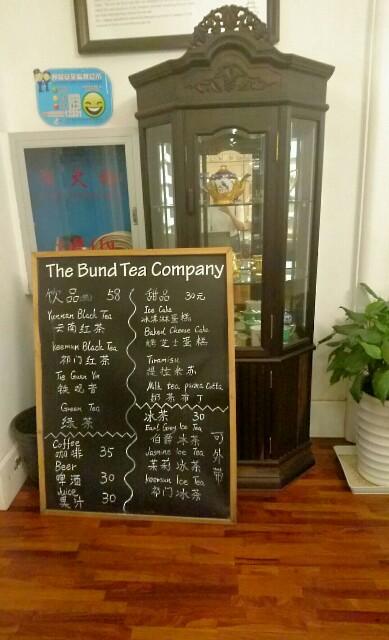 The Bund Tea Company
饮品 58
Yunnan Black Tea
云南红茶
Keemun Black Tea
祁门红茶
Tie Guan Yin
铁观音
Green Tea
绿茶
Coffee
咖啡 35
Beer
啤酒 30
Juice
果汁 30
甜品 30元
Ice Cake
冰淇淋蛋糕
Baked Cheese Cake
烤芝士蛋糕
Tiramisu
提拉米苏
Milk tea panna Cotta
奶茶布丁
冰茶 30
Earl Grey Ice Tea
伯爵冰茶
Jasmine Ice Tea
茉莉冰茶
Keemun Ice Tea
祁门冰茶
可外带